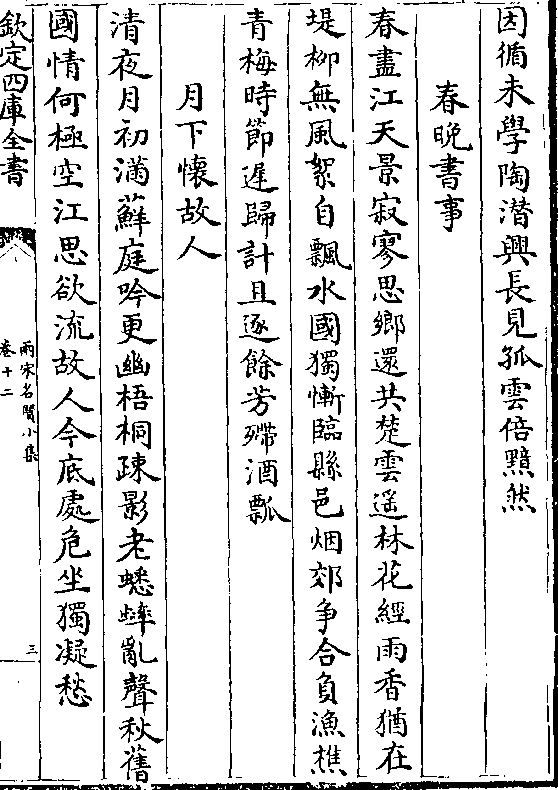 因循未學陶潛興長見孤雲倍黯然
春晚書事
春盡江天景寂寥思鄉還共楚雲遥林花經雨香猶在
堤柳無風絮自飄水國獨慚臨縣邑烟郊争合負漁樵
青梅時節遲歸計且逐餘芳殢酒瓢
月下懷故人
清夜月初滿蘚庭吟更幽梧桐疎影老蟋蟀亂聲秋舊
國情何極空江思欲流故人今底處危坐獨凝愁
欽定四庫全書
兩宋名賢小集
卷十二
三